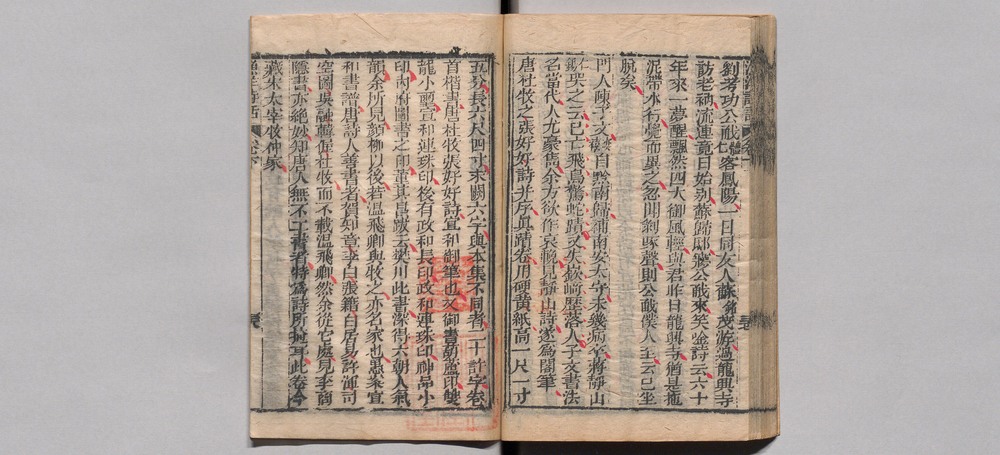 劉考功公㦷體仁客鳳陽一日同友人蘇銘茂游過龍興寺
訪老衲流連竟日始別蘇歸邸夢公㦷來笑唫詩云六十
年來一夢醒飄然四大御風輕與君昨日龍興寺猶是拖
泥帶水行覺而異之忽聞剝啄聲則公㦷僕人至云已坐
脫矣
門人陳子文自黔南歸補南安太守未幾病卒蔣靜山
仁錫哭之云已亡飛鳥驚蛇蹟又失嶔崎歷落人子文書法
名當代人尤豪雋余方欲作哀輓見靜山詩遂爲閣筆
唐杜牧之張好好詩并序眞蹟卷用硬黃紙高一尺一寸
五分長六尺四寸末闕六字與本集不同者二十許字卷
首楷書唐杜牧張好好詩宣和御筆也又御書葫蘆印雙
龍小璽宣和連珠印後有政和長印政和連珠印神品小
印內府圖書之印董其昌跋云樊川此書深得六朝人氣
韻余所見顏柳以後若溫飛卿與牧之亦名家也愚案宣
和書譜唐詩人善書者賀知章李白張籍白居易許渾司
空圖吳融韓偓杜牧而不載溫飛卿然余從它處見李商
隱書亦絕妙知唐人無不工書者特爲詩所掩耳此卷今
藏宋太宰牧仲家
漁洋詩話 卷下